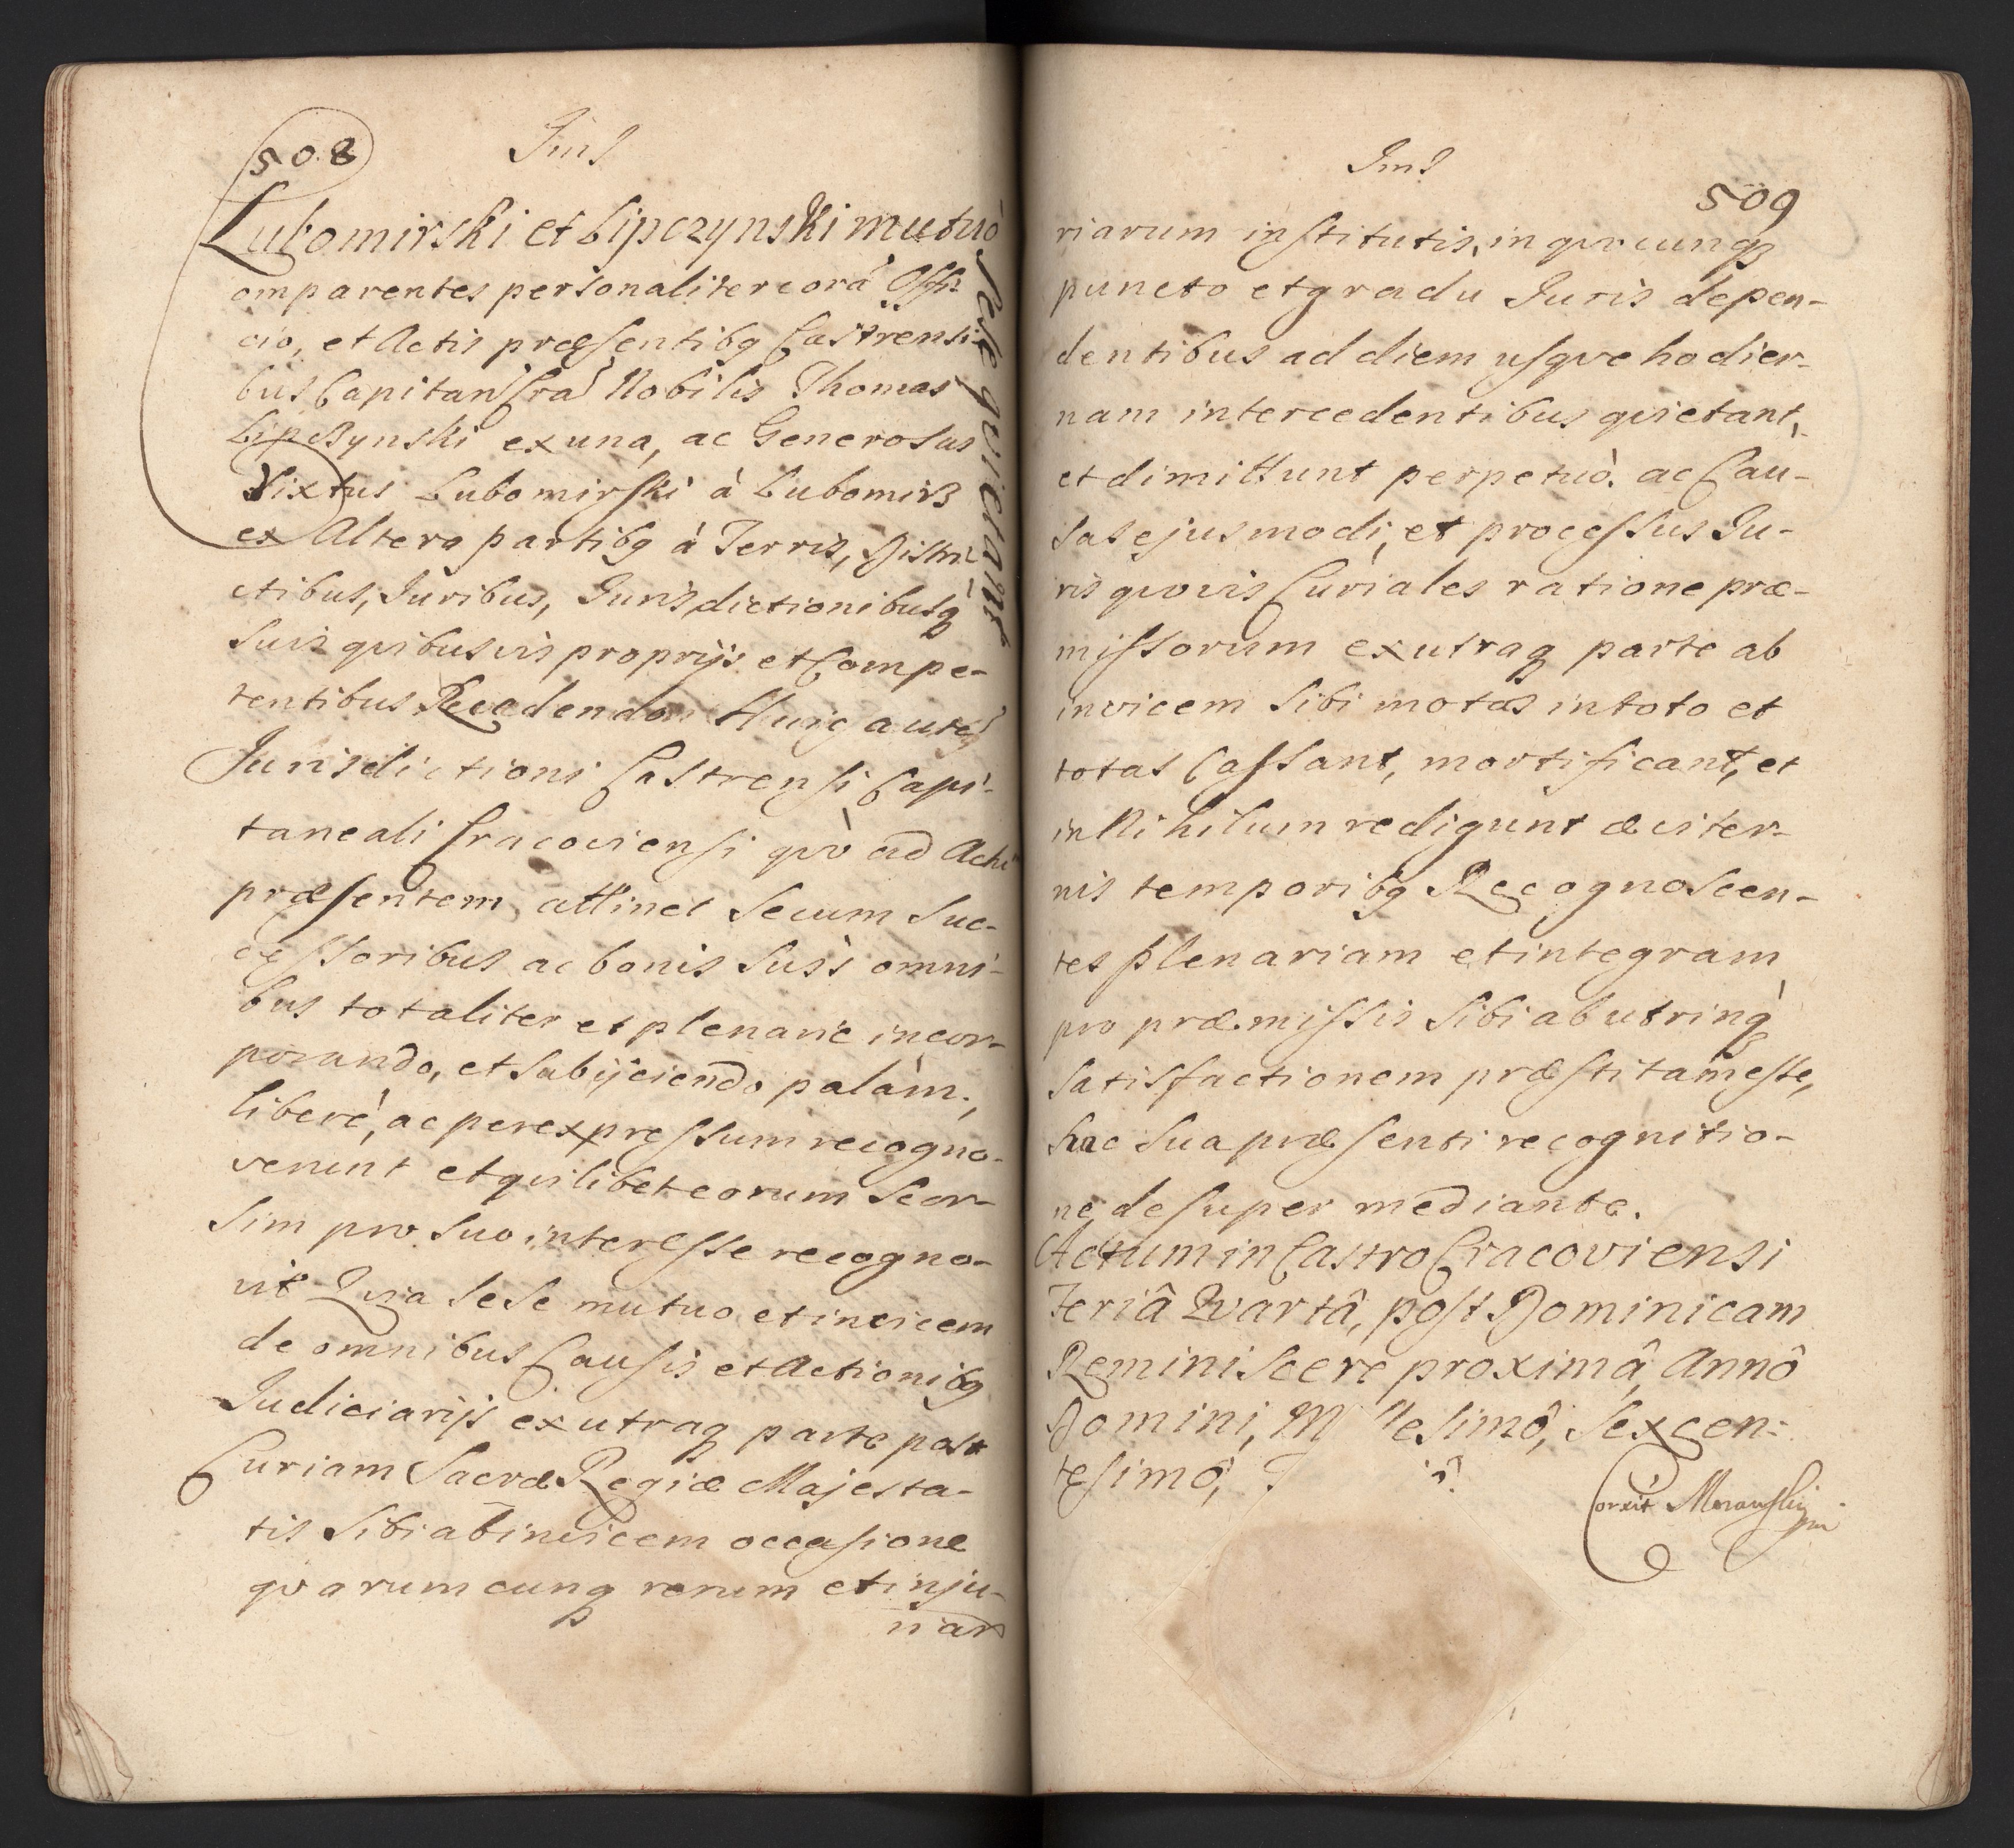 508
Lubomirski et Lipczynski mutuo
sese quietant
omparentes personaliter corã Offi
cio, et Actis præsentibq Castrensi-
bus Capitan Cra Nobilis Thomas
Lipczynski ex una, ac Generosus
Sixtus Lubomirski à Lubomirz
ex Altera partibq à Terris, Distri
ctibus, Juribus, Jurisdictionibusq
suis quibusvis proprijs et Compe-
tentibus Recedendo. Huic autẽ
Jurisdictioni Castrensi Capi-
taneali Cracoviensi quò ad Actũ
præsentem, attinet secum suc-
cessoribus ac bonis suis omni-
bus totaliter et plenarie incor-
porando, et subijciendo palàm,
liberè, ac per expressum recogno-
verunt et quilibet eorum seor-
sim pro suo interesse recogno-
vit Quia sese mutuo et invicem
de omnibus Causis et Actionibq
Judiciarijs ex utraq parte post
Curiam Sacræ Regiæ Majesta-
tis sibi ab invicem occasione
quarumcunq rerum et inju-
riar
509
riarum institutis, in quocunq
puncto et gradu Juris depen-
dentibus ad diem usque hodier-
nam intercedentibus quietant,
et dimittunt perpetuò. ac Cau-
sas ejusmodi, et processus Ju-
ris quovis Curiales ratione præ-
missorum ex utraq parte ab
invicem sibi motas in toto et
totas Cassant, mortificant, et
in Nihilum redigunt æviter-
nis temporibq Recognoscen-
tes plenariam et integram
pro præmissis sibi ab utrinq
satisfactionem præstitam esse,
hac sua præsenti recognitio-
ne desuper mediante.
Actum in Castro Cracoviensi
Feriâ Quartâ, post Dominicam
Reminiscere proximâ, Annô
Domini, M llesimô, Sexcen-
tesimô,
Correxit